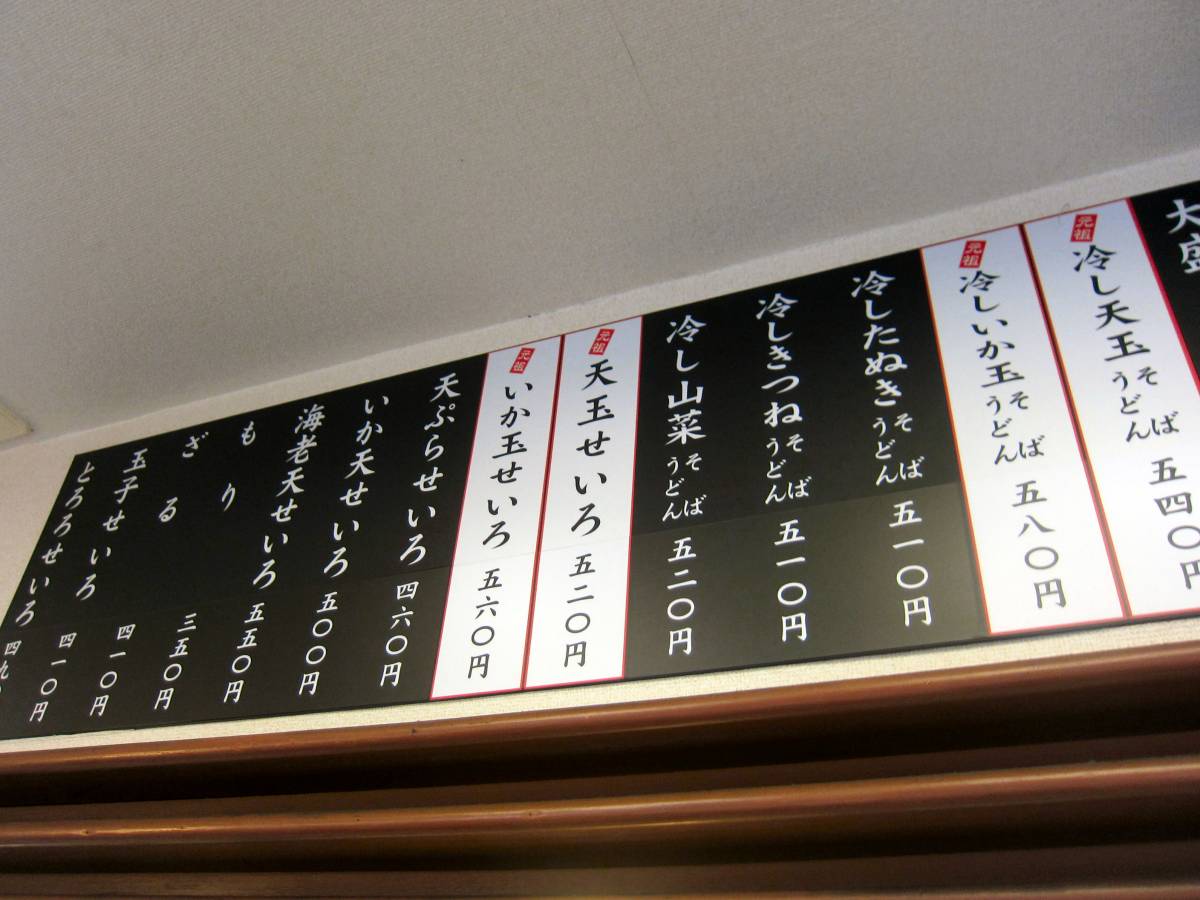 大盛
元祖 冷し天玉 そば うどん 五四〇円
元祖 冷しいか玉 そば うどん 五八〇円
冷したぬき そば うどん 五一〇円
冷しきつね そば うどん 五一〇円
冷し山菜 そば うどん 五二〇円
元祖 天玉せいろ 五二〇円
元祖 いか玉せいろ 五六〇円
天ぷらせいろ 四六〇円
いか天せいろ 五〇〇円
海老天せいろ 五五〇円
もり 三五〇円
ざる 四一〇円
玉子せいろ 四一〇円
とろろせいろ 四九